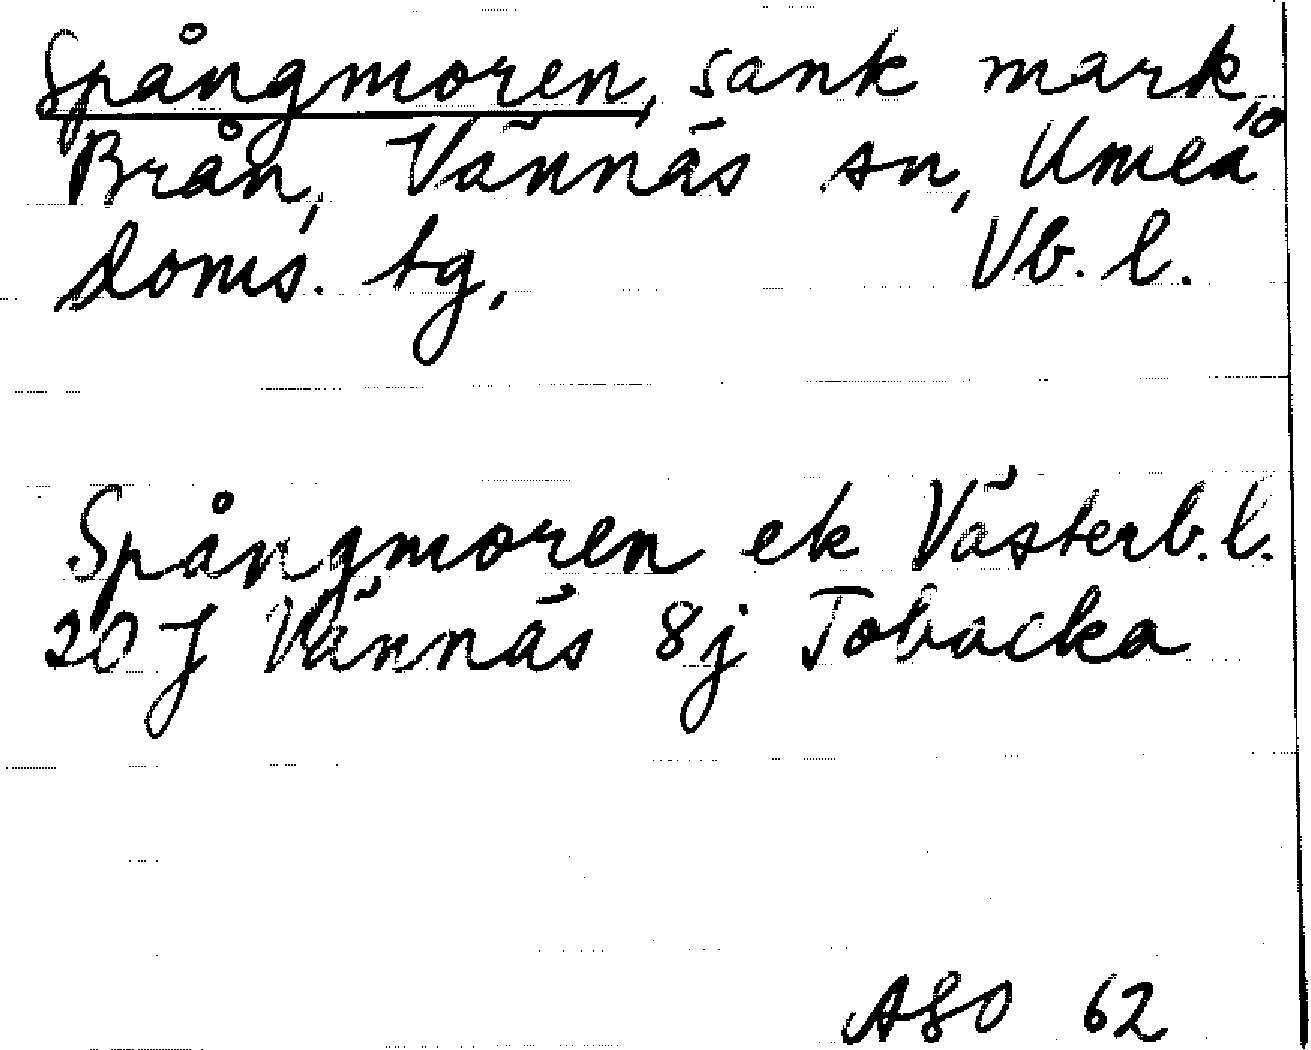 Spångmoren, sank mark,
Brån, Vännäs sn, Umeå
doms. tg, Vb. l.
Spångmoren ek Västerb. l.
20 J Vännäs 8j Tobacka
ASO 62